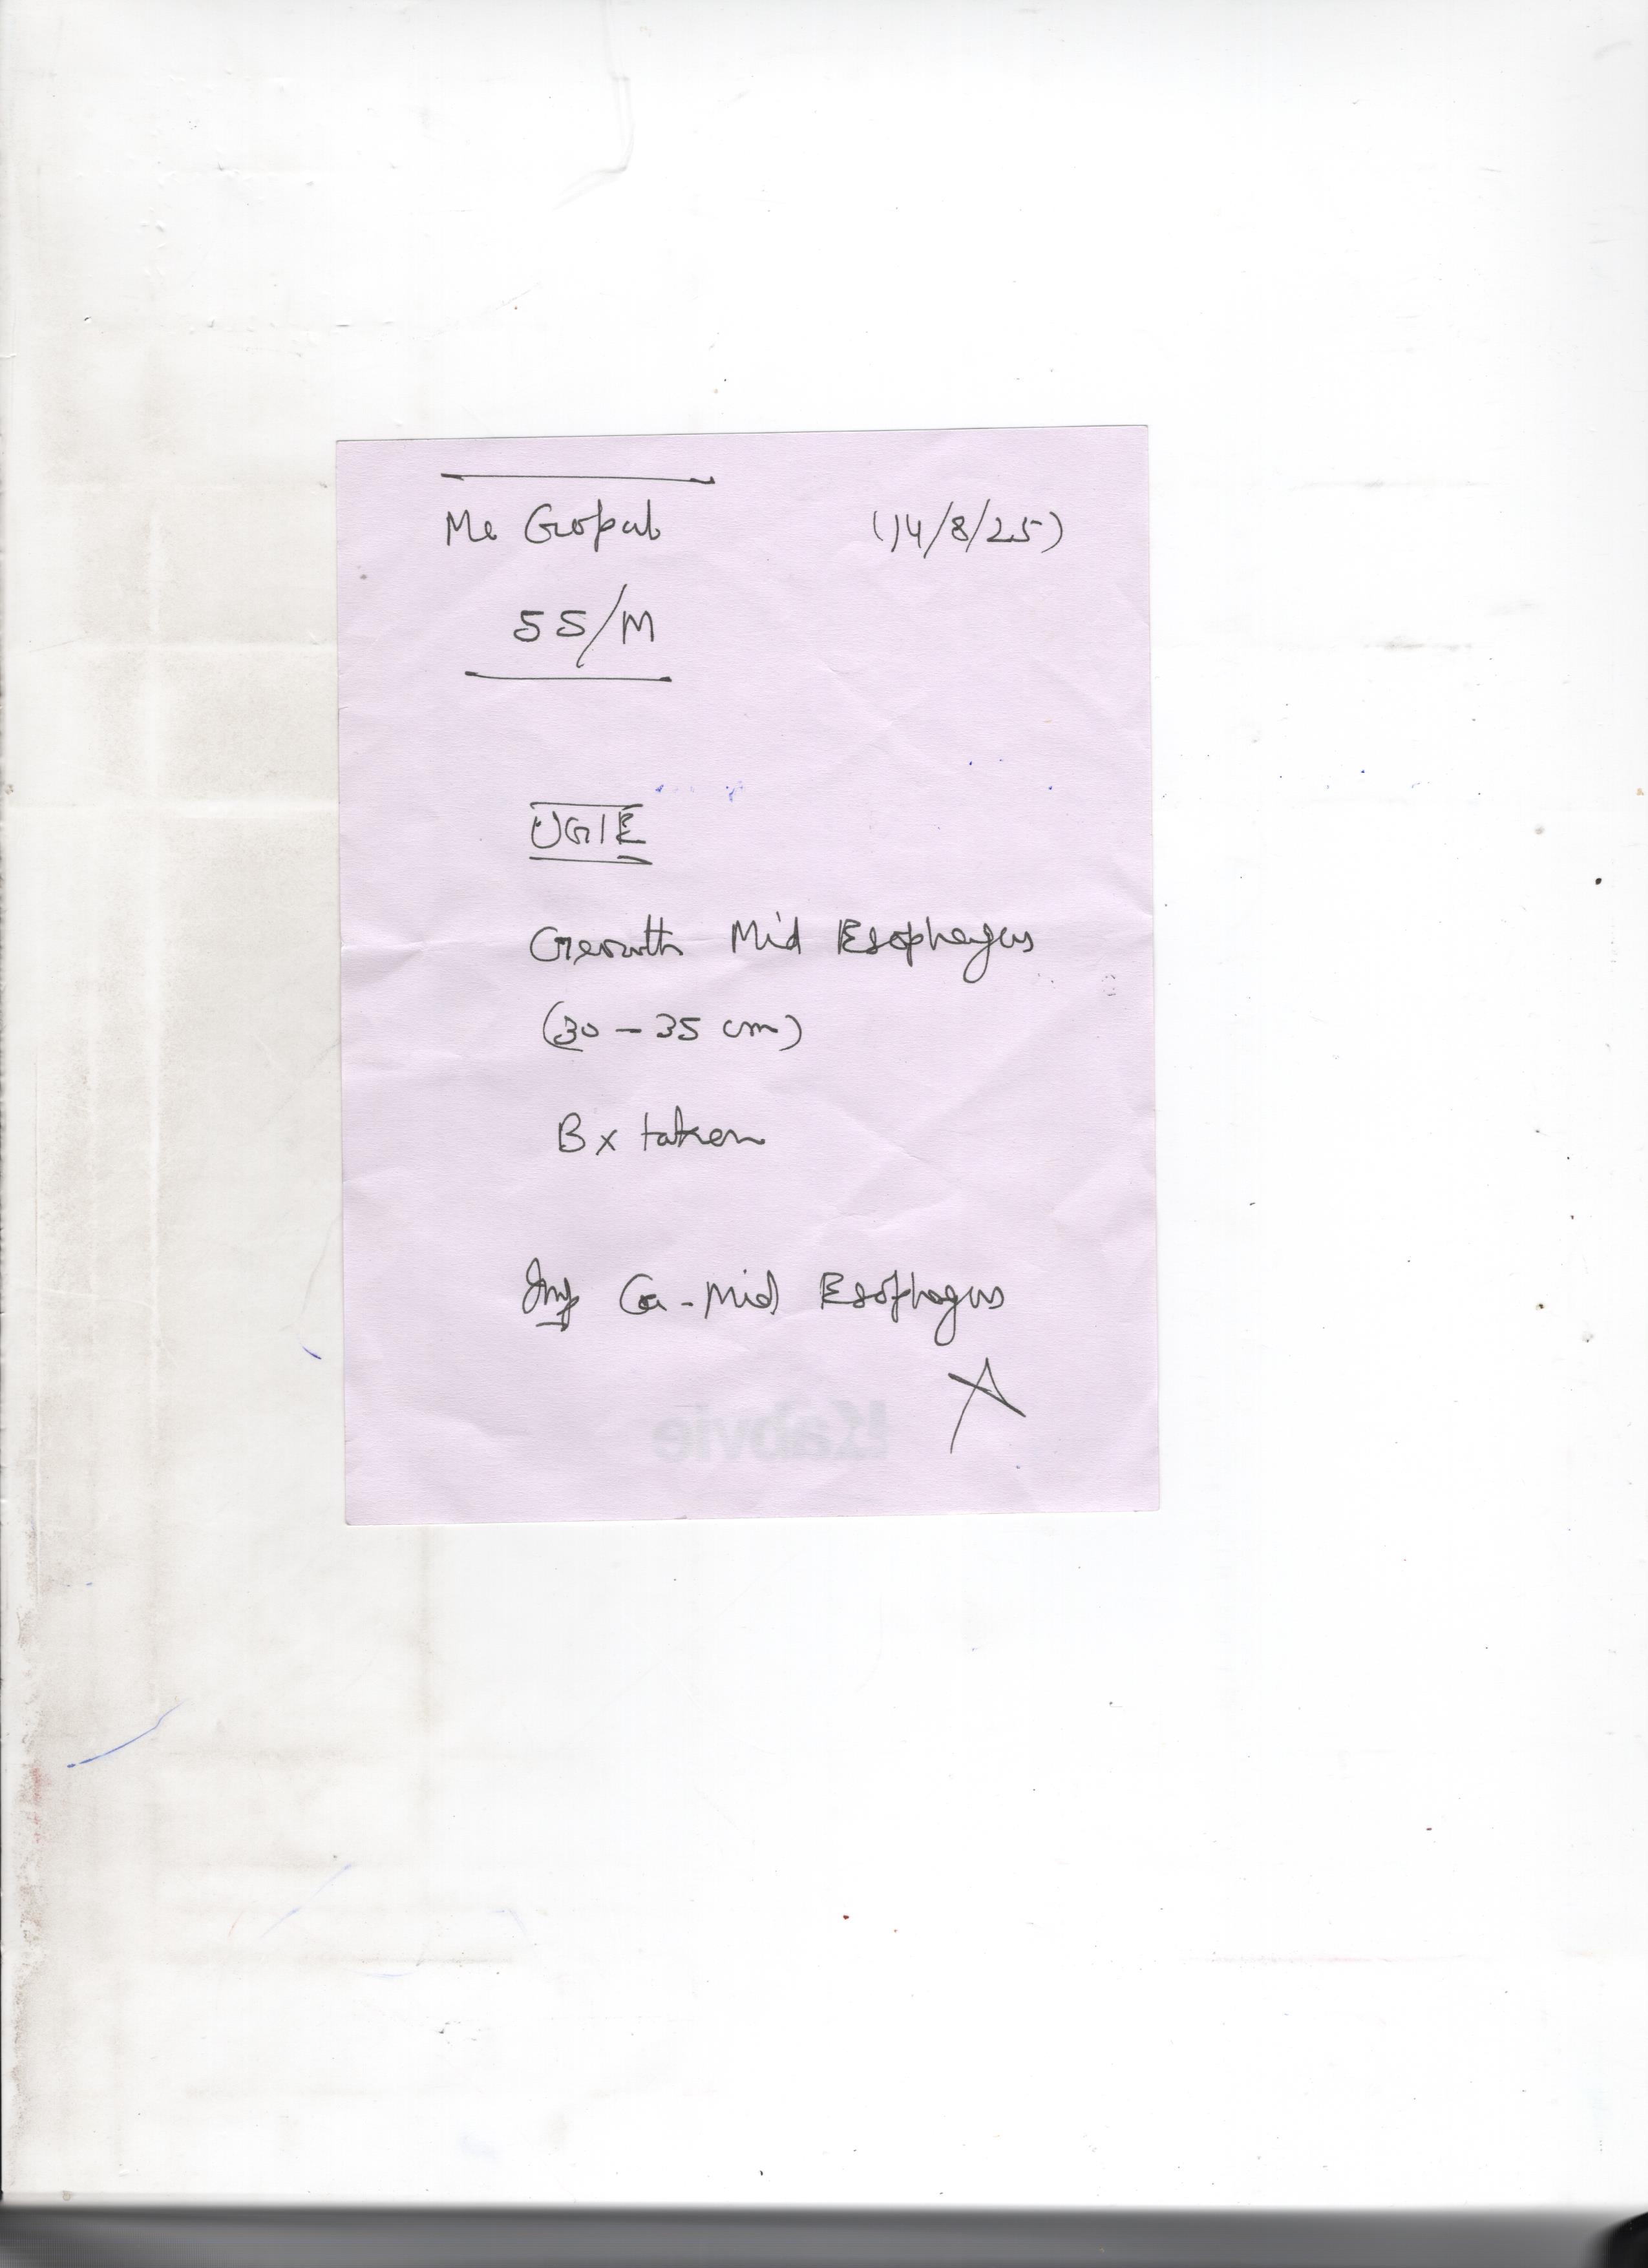 Mr Gopal (14/8/25)
55/M
UGIE
Growth Mid Esophagus
(30 - 35 cm)
Bx taken
Imp Ca - Mid Esophagus